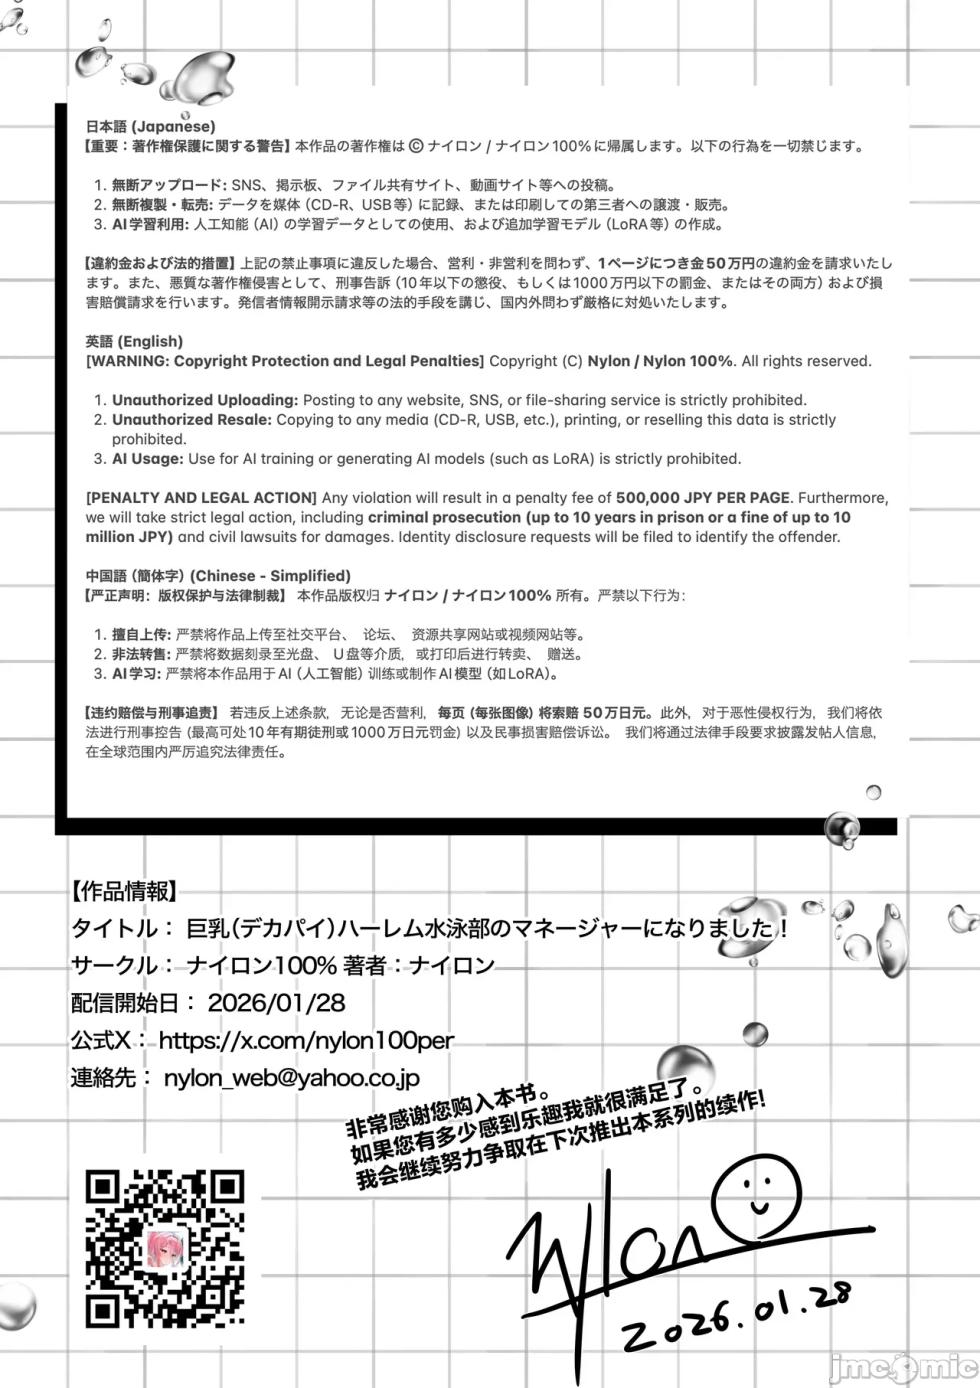 日本語 (Japanese)
【重要：著作権保護に関する警告】本作品の著作権は © ナイロン / ナイロン100%に帰属します。以下の行為を一切禁じます。
1. 無断アップロード: SNS、掲示板、ファイル共有サイト、動画サイト等への投稿。
2. 無断複製・転売: データを媒体（CD-R、USB等）に記録、または印刷しての第三者への譲渡・販売。
3. AI学習利用: 人工知能（AI）の学習データとしての使用、および追加学習モデル（LoRA等）の作成。
【違約金および法的措置】上記の禁止事項に違反した場合、営利・非営利を問わず、1ページにつき金50万円の違約金を請求いたし
ます。また、悪質な著作権侵害として、刑事告訴（10年以下の懲役、もしくは1000万円以下の罰金、またはその両方）および損
害賠償請求を行います。発信者情報開示請求等の法的手段を講じ、国内外問わず厳格に対処いたします。
英語 (English)
[WARNING: Copyright Protection and Legal Penalties] Copyright (C) Nylon / Nylon 100%. All rights reserved.
1. Unauthorized Uploading: Posting to any website, SNS, or file-sharing service is strictly prohibited.
2. Unauthorized Resale: Copying to any media (CD-R, USB, etc.), printing, or reselling this data is strictly
prohibited.
3. AI Usage: Use for AI training or generating AI models (such as LoRA) is strictly prohibited.
[PENALTY AND LEGAL ACTION] Any violation will result in a penalty fee of 500,000 JPY PER PAGE. Furthermore,
we will take strict legal action, including criminal prosecution (up to 10 years in prison or a fine of up to 10
million JPY) and civil lawsuits for damages. Identity disclosure requests will be filed to identify the offender.
中国語（簡体字）(Chinese - Simplified)
【严正声明：版权保护与法律制裁】 本作品版权归 ナイロン / ナイロン100% 所有。严禁以下行为：
1. 擅自上传: 严禁将作品上传至社交平台、 论坛、 资源共享网站或视频网站等。
2. 非法转售: 严禁将数据刻录至光盘、 U盘等介质，或打印后进行转卖、 赠送。
3. AI学习: 严禁将本作品用于AI（人工智能）训练或制作AI模型（如LoRA）。
【违约赔偿与刑事追责】 若违反上述条款，无论是否营利，每页（每张图像）将索赔 50万日元。此外，对于恶性侵权行为，我们将依
法进行刑事控告（最高可处10年有期徒刑或1000万日元罚金）以及民事损害赔偿诉讼。 我们将通过法律手段要求披露发帖人信息，
在全球范围内严厉追究法律责任。
【作品情報】
タイトル： 巨乳（デカパイ）ハーレム水泳部のマネージャーになりました！
サークル： ナイロン100% 著者：ナイロン
配信開始日： 2026/01/28
公式X： https://x.com/nylon100per
連絡先： nylon_web@yahoo.co.jp
非常感谢您购入本书。
如果您有多少感到乐趣我就很满足了。
我会继续努力争取在下次推出本系列的续作!
Nylon
2026.01.28
jmcomic